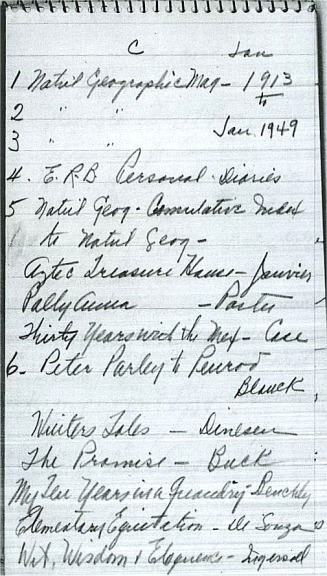 C Jan
1 Nat'l Geographic Mag - 1913
2 " " to
3 " " Jan. 1949
4. E.R.B Personal Diaries
5 Nat'l Geog - Cumulative Index
to Nat'l Geog -
Aztec Treasure House - Janvier
Pollyanna - Porter
Thirty Years with the Mex - Case
6- Peter Parley to Penrod
Blanck
Winters Tales - Dinesen
The Promise - Buck
My Ten Years in a Quandry - Benchly
Elementary Equitation - De Souza
Wit, Wisdom & Eloquence - Ingersoll